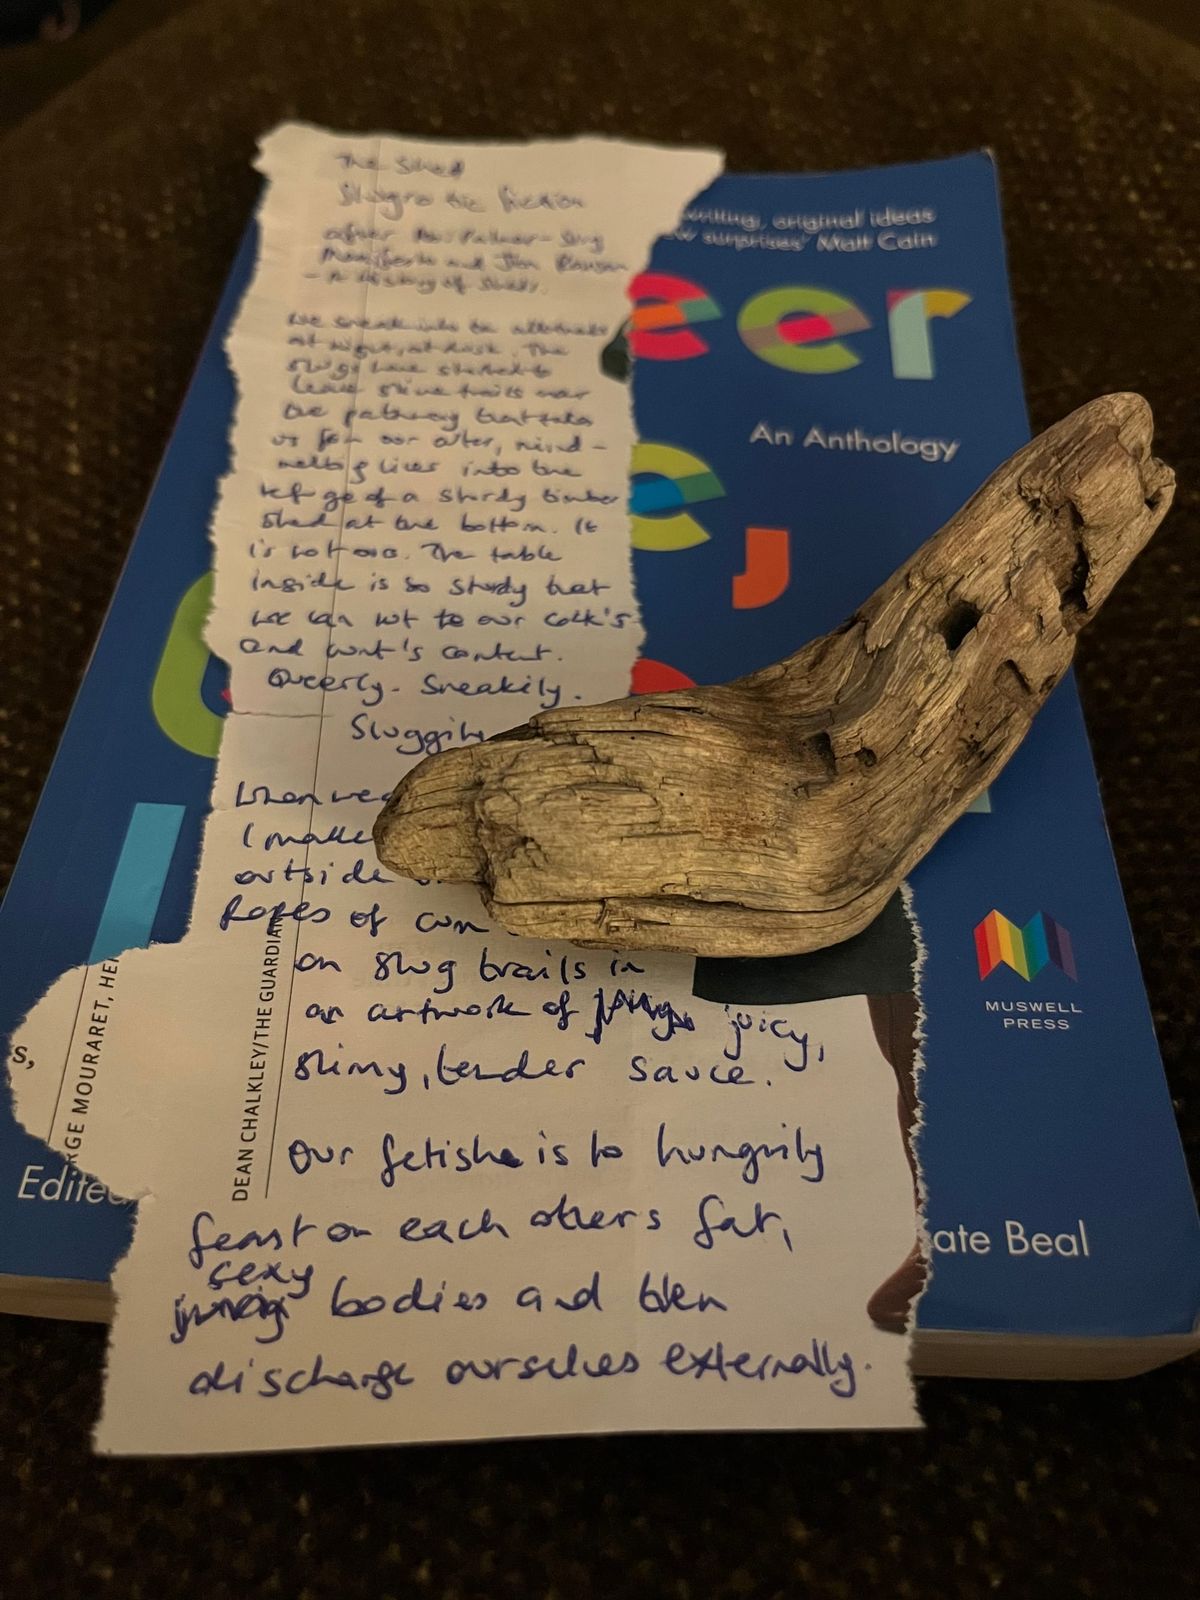 The Shed
Slugrotic fiction
after Abi Palmer - Slug
Manifesto and Jon Ransom
- A History of Sheds.
We sneak into the allotment
at night, at dusk. The
slugs have started to
leave slime trails over
the pathway that takes
us from our outer, mind-
melting lives into the
refuge of a sturdy timber
shed at the bottom. It
is not ours. The table
inside is so sturdy that
we can rut to our cock's
and cunt's content.
Queerly. Sneakily.
Sluggily
When we
I make
outside
Ropes of cum
on slug trails in
an artwork of juicy,
slimy, tender sauce.
Our fetishe is to hungrily
feast on each others fat,
sexy
bodies and then
discharge ourselves externally.
DEAN CHALKLEY/THE GUARDIAN
GE MOURARET, HE
s,
writing, original ideas
ew surprises' Matt Cain
eer
An Anthology
e,
MUSWELL
PRESS
Edited
ate Beal